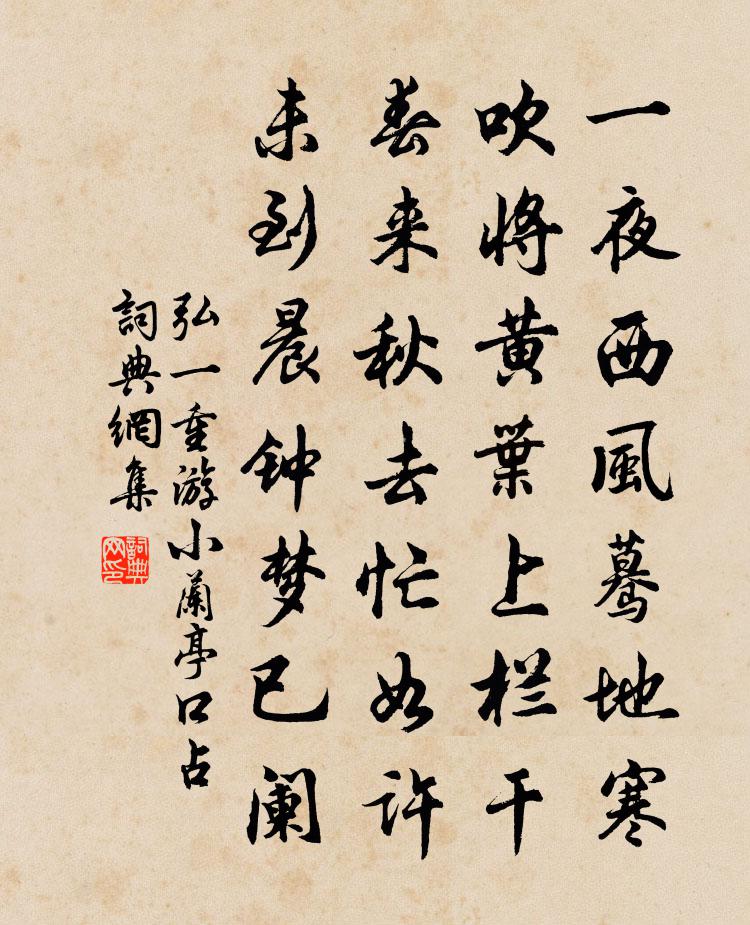 一夜西風蓦地寒
吹將黄葉上栏干
春来秋去忙如许
未到晨钟梦已阑
弘一重游小蘭亭口占
詞典網集
詞典网印